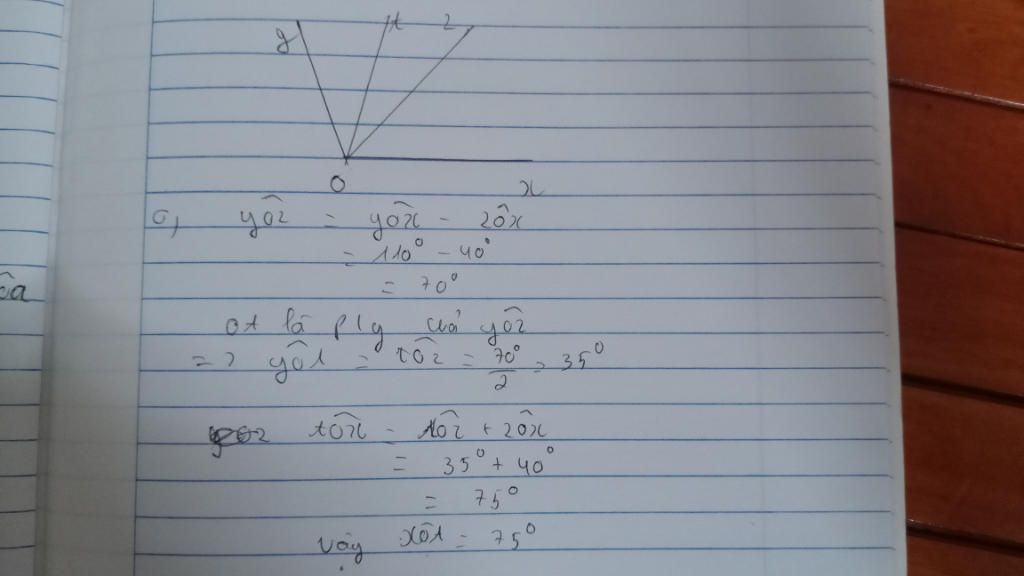 y t z
O x
a, yôz = yôx - zôx
= 110° - 40°
= 70°
ôa
ot là p/g của yôz
=> yôt = tôz = 70°/2 = 35°
tôx = tôz + zôx
= 35° + 40°
= 75°
vậy xôt = 75°